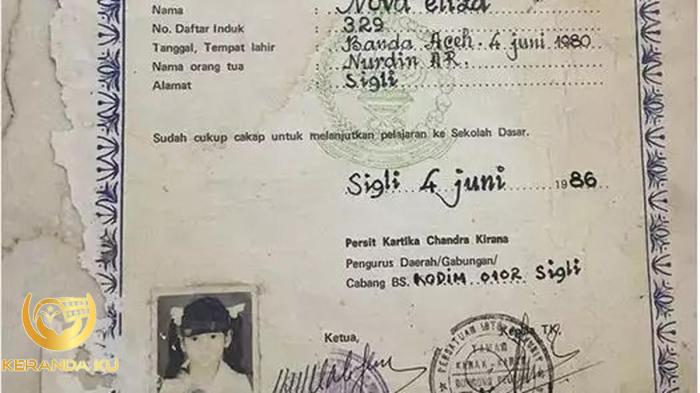 Nama : Nova eliza
No. Daftar Induk : 329
Tanggal, Tempat lahir : Banda Aceh. 4 juni 1980
Nama orang tua : Nurdin AR.
Alamat : Sigli
Sudah cukup cakap untuk melanjutkan pelajaran ke Sekolah Dasar.
Sigli 4 juni 1986
Persit Kartika Chandra Kirana
Pengurus Daerah/Gabungan/
Cabang BS. KODIM 0102 Sigli
Ketua, Kepala TK,
PERSATUAN ISTRI
TAMAN
KANAK-KANAK
KERANDA KU